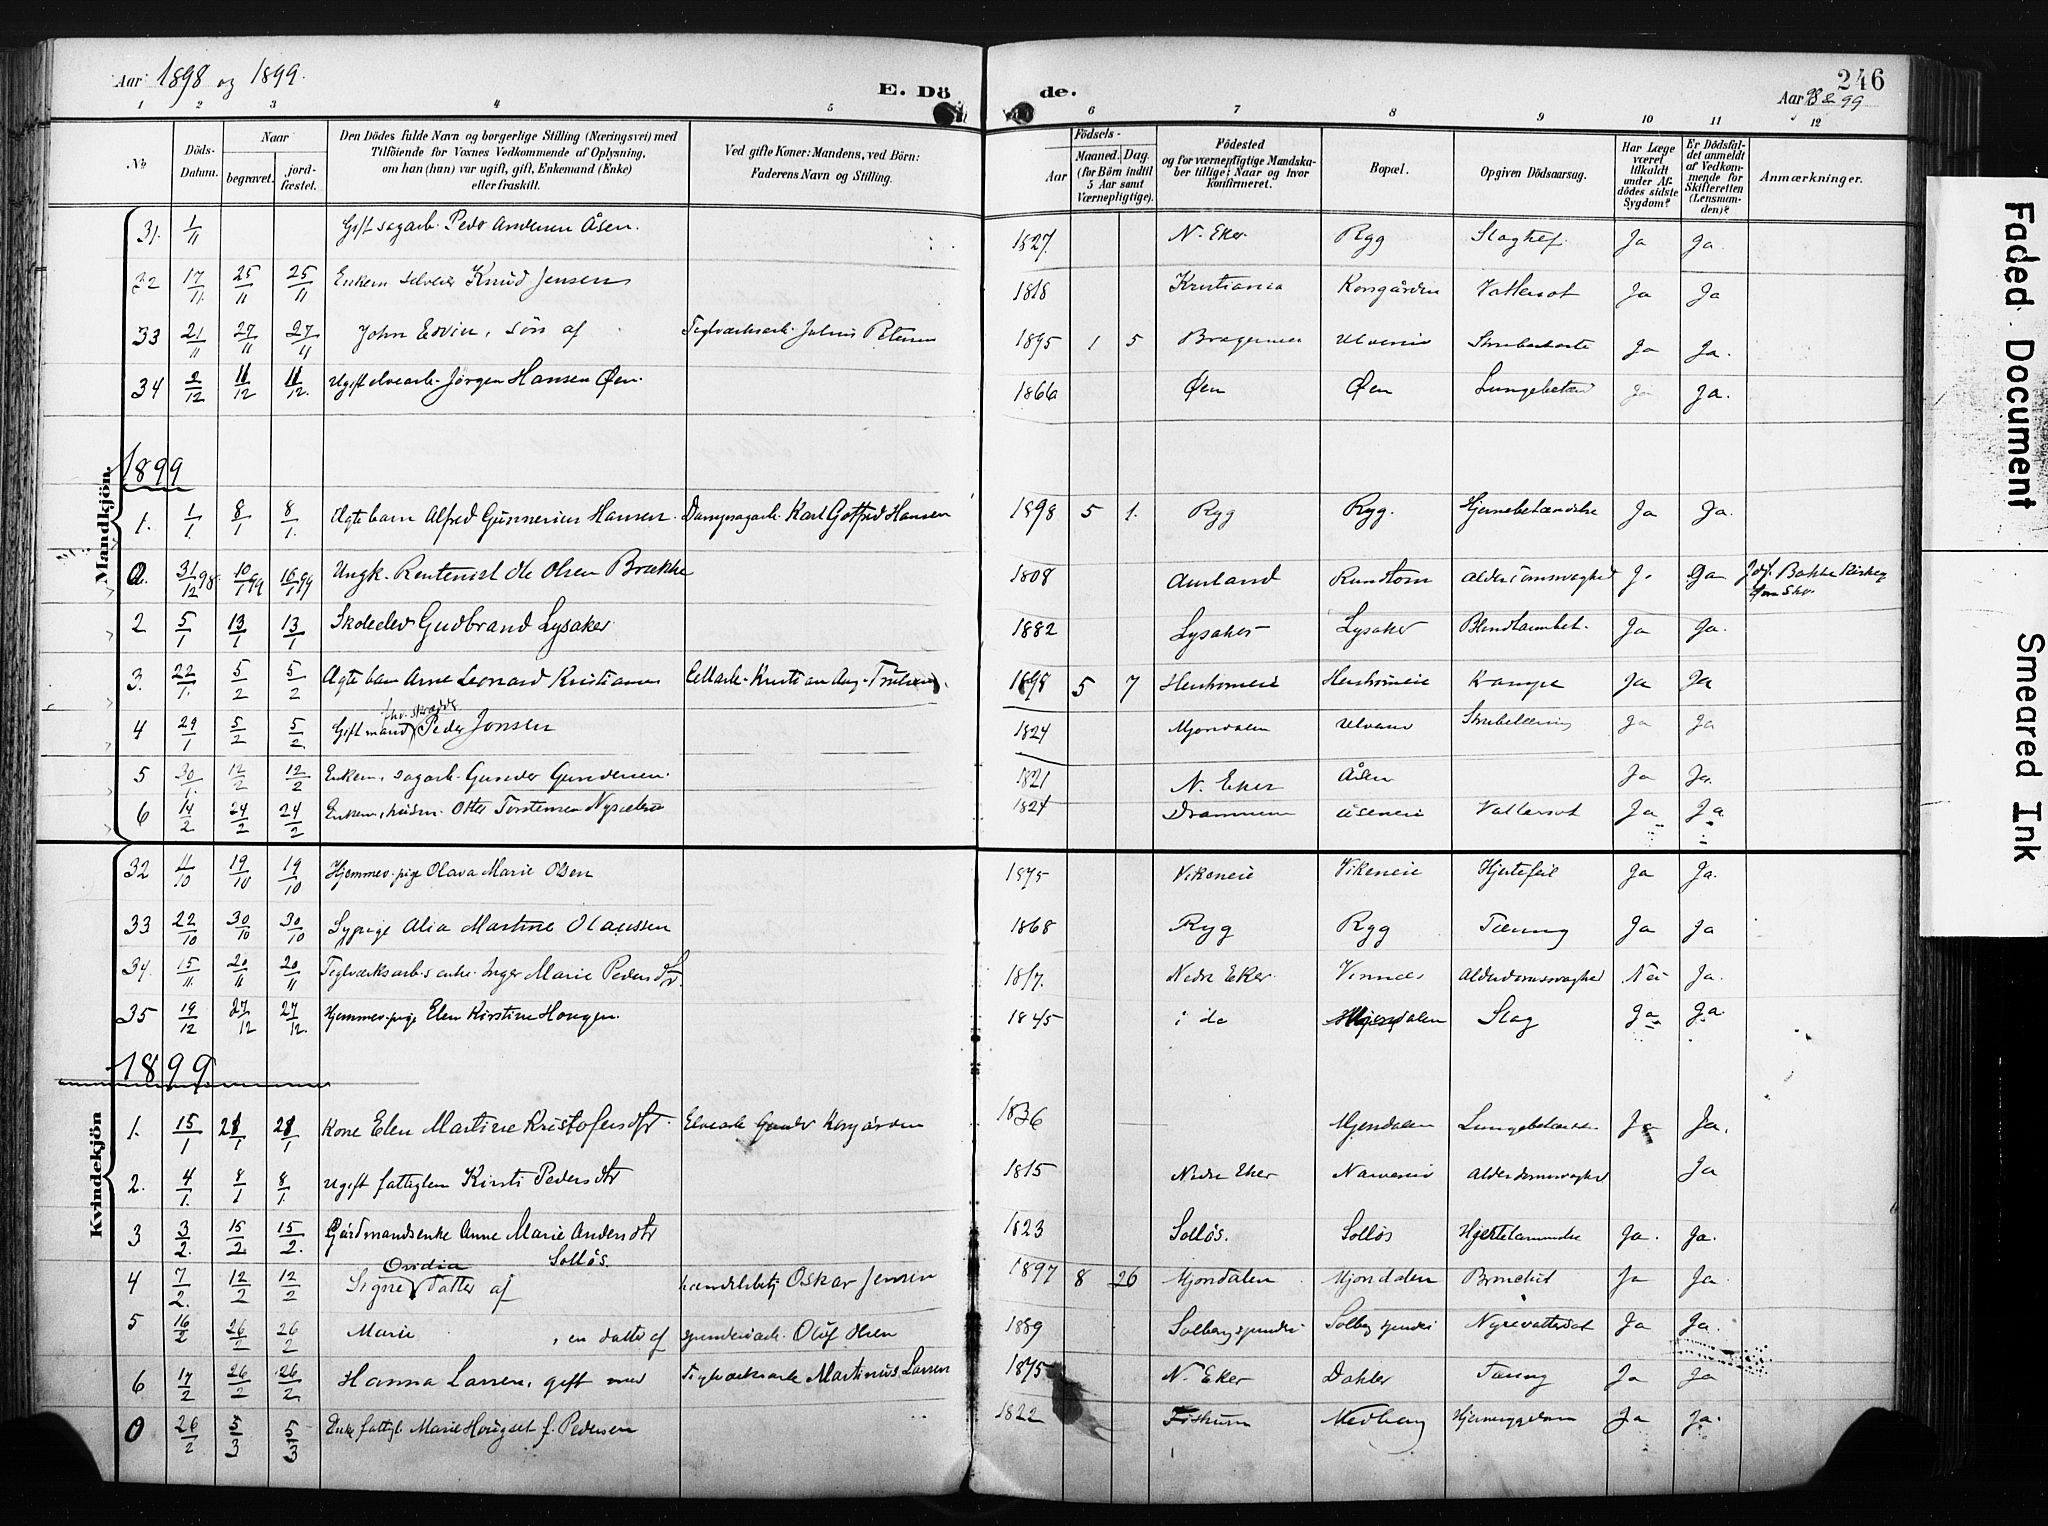 Aar 1898 og 1899.
E. Dö de.
246
Aar 98 & 99
1 2 3 4 5 6 7 8 9 10 11 12
No
Döds-Datum.
Naar
begravet.
jord-fæstet.
Den Dödes fulde Navn og borgerlige Stilling (Næringsvei) med Tilföiende for Voxnes Vedkommende af Oplysning, om han (hun) var ugift, gift, Enkemand (Enke) eller fraskilt.
Ved gifte Koner: Mandens, ved Börn: Faderens Navn og Stilling.
Födsels-
Aar
Maaned. Dag.
(for Börn indtil 5 Aar samt Værnepligtige).
Födested og for værnepligtige Mandskaber tillige: Naar og hvor konfirmeret.
Bopæl.
Opgiven Dödsaarsag.
Har Læge været tilkaldt under Afdödes sidste Sygdom?
Er Dödsfaldet anmeldt af Vedkommende for Skifteretten (Lensmanden)?
Anmærkninger.
Mandkjön.
31. 1/11 Gift sagarb. Peder Andersen Åsen. 1827. N. Eker Ryg Slagtilf. Ja Ja.
32 17/11 25/11 25/11 Enkem. selveier Knud Jensen 1818 Kristiania Korsgården Vattersot Ja Ja
33 21/11 27/11 27/11 John Edvin, sön af Teglværksarb. Julius Petersen 1895 1 5 Bragernes Ulveneie Strubehoste Ja Ja.
34 2/12 11/12 11/12 Ugift elvearb. Jørgen Hansen Øen. 1866 Øen Øen Lungebetænd Ja Ja.
1899
1. 1/1 8/1 8/1. Ægte barn Alfred Gunnerius Hansen. Dampsagarb. Karl Gotfred Hansen 1898 5 1. Ryg Ryg. Hjernebetændelse Ja Ja.
0. 31/12 98. 10/1 99 10/1 99 Ungk. Rentenist Ole Olsen Brække 1808 Aurland Rundtom Alderdomssvaghed Ja Ja Jdf. Bakke Kirke
2 5/1 13/1 13/1 Skoleelev Gudbrand Lysaker 1882 Lysaker Lysaker Blindtarmbet. Ja Ja.
3. 22/1. 5/2 5/2 Ægte barn Arne Leonard Kristiansen Cellarb. Kristian Aug. Trulsen. 1898 5 7 Krampe Ja Ja
4 29/1 5/2 5/2. Gift mand fhv. skrædder Peder Jonsen 1824 Mjøndalen Ja Ja
5 30/1. 12/2 12/2 Enkem. sagarb. Gunder Gundersen. 1821 N. Eker Åsen Ja Ja.
6 14/2 24/2 24/2 Enkem. husm. Otter Torstensen 1824 Drammen Åseneie Vattersot Ja Ja
Kvindekjön
32 11/10 19/10 19/10 Hjemmev. pige Olava Marie Olsen 1875 Vikeneie Vikeneie Hjertefeil Ja Ja.
33 22/10 30/10 30/10 Sypige Alia Martine Olaussen 1868 Ryg Ryg Tæring Ja Ja
34. 15/11. 20/11 20/11 Teglværksarb.s enke Inger Marie Pedersdtr. 1817. Nedre Eker. Vinnes Alderdomssvaghed Nei Ja.
35 19/12 27/12 27/12. Hjemmev. pige Elen Kirstine Hougen. 1845 i do Mjøndalen Slag Ja Ja
1899
1. 15/1 21/1 21/1 Kone Elen Martine Kristofersdtr. Elvearb Gunder Korsgården 1836 Mjøndalen Lungebetænd. Ja Ja.
2. 4/1. 8/1 8/1. Ugift fattiglem Kirsti Pedersdtr 1815 Nedre Eker Alderdomssvaghed Ja
3 3/2. 15/2. 15/2. Gårdmandsenke Anne Marie Andersdtr Solløs 1823 Solløs. Solløs Hjertelammelse Ja. Ja.
4 7/2. 12/2 12/2 Signe Ovidia Datter af handelsbetj Oskar Jensen 1897 8 26 Mjøndalen Mjøndalen Bronchit Ja Ja.
5 16/2 26/2 26/2 Marie, en datter af spinderiarb. Oluf Olsen 1889 Solbergspinderi Solbergspinderi Nyrevattersot Ja Ja.
6 17/2 26/2 26/2. Hanna Larsen, gift med Teglværksarb Martinius Larsen 1875 N. Eker Dahler Tæring Ja Ja
0 26/2 5/3 5/3 Enke fattigl. Marie Hougset f. Pedersen 1822 Fiskum Medberg Hjernesygdom Ja Ja.
Faded Document
Smeared Ink